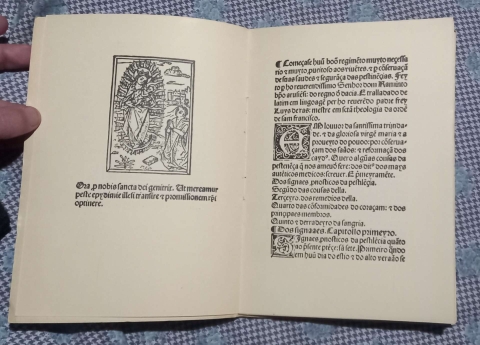 Ora p nobis sancta dei genitrix. Ut mereamur
peste epydimie illesi transire & promissionem xpi
optinere.
¶ Começase huũ boõ regimẽto muyto necessa
rio & muyto puritoso aos viuẽtes. & pª cõseruaçã
de suas saudes & segurãça das pestilẽçias. Fey
to p ho reuerendissimo Senhor dom Raminto
bpo arusiẽs. do regno d dacia. E tralladado de
latim em lingoagẽ. por ho reuerẽdo padre frey
Luys de ras: mestre em sctã theologia da ordẽ
de sam francisco.
EM louuor da sanctissima trinda-
de. & da gloriosa virgẽ maria & a
proueyto do pouoo: por cõserua-
çam dos saãos: & reformaçã dos
cayos. Quero algũas cousas da
pestilẽça q nos amẽude fere: dos dictos dos mays
autẽticos medicos: screuer. E primeyramẽte.
Dos signaaes. pnosticos da pestilẽcia.
Segũdo das cousas della.
Terçeyro. dos remedios della.
Quarto das cõformidades do coraçam: & dos
principaaes membros.
Quinto & derradeyro da sangria.
¶ Dos signaaes. Capitollo primeyro.
Signaes. pnosticos da pestilẽcia quãto
ao psente ptẽçe: sã sete. Primeiro qñdo
em huũ dia do estio & do alto veraão se